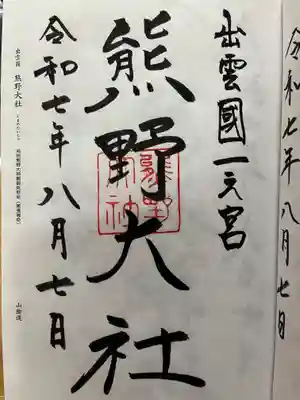 令和七年八月七日
出雲國一之宮
熊野大社
令和七年八月七日
出雲国 熊野大社 くまのたいしゃ
山陰道